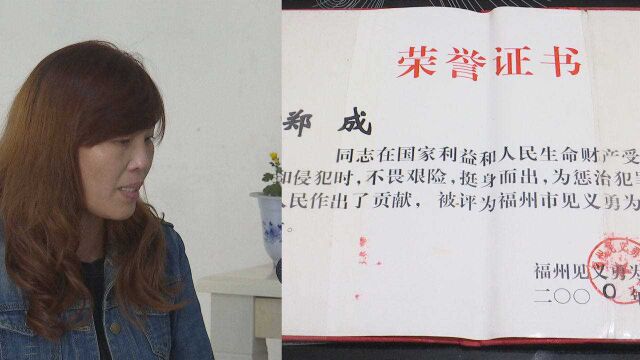 荣誉证书
郑成
同志在国家利益和人民生命财产受
侵犯时，不畏艰险，挺身而出，为惩治犯
民作出了贡献，被评为福州市见义勇为
福州见义勇为
二〇〇〇年